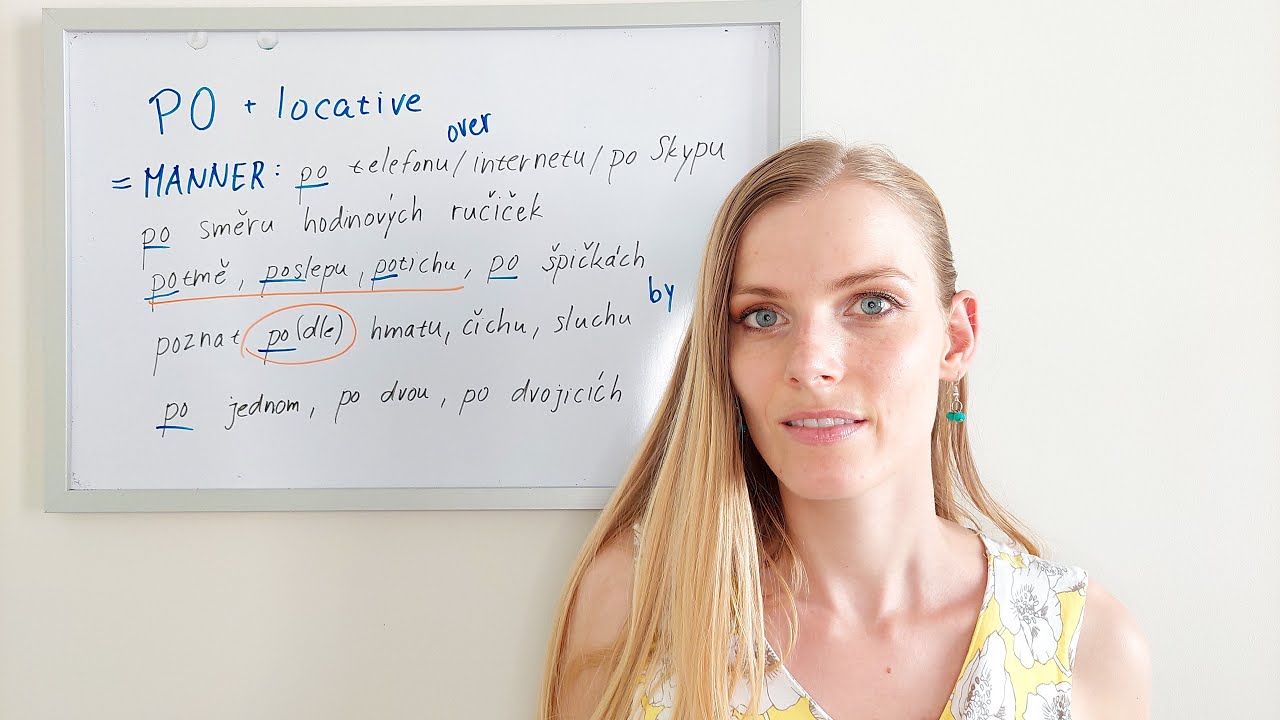 PO + locative
over
= MANNER: po telefonu/internetu/po Skypu
po směru hodinových ručiček
potmě, poslepu, potichu, po špičkách
by
poznat po(dle) hmatu, čichu, sluchu
po jednom, po dvou, po dvojicích